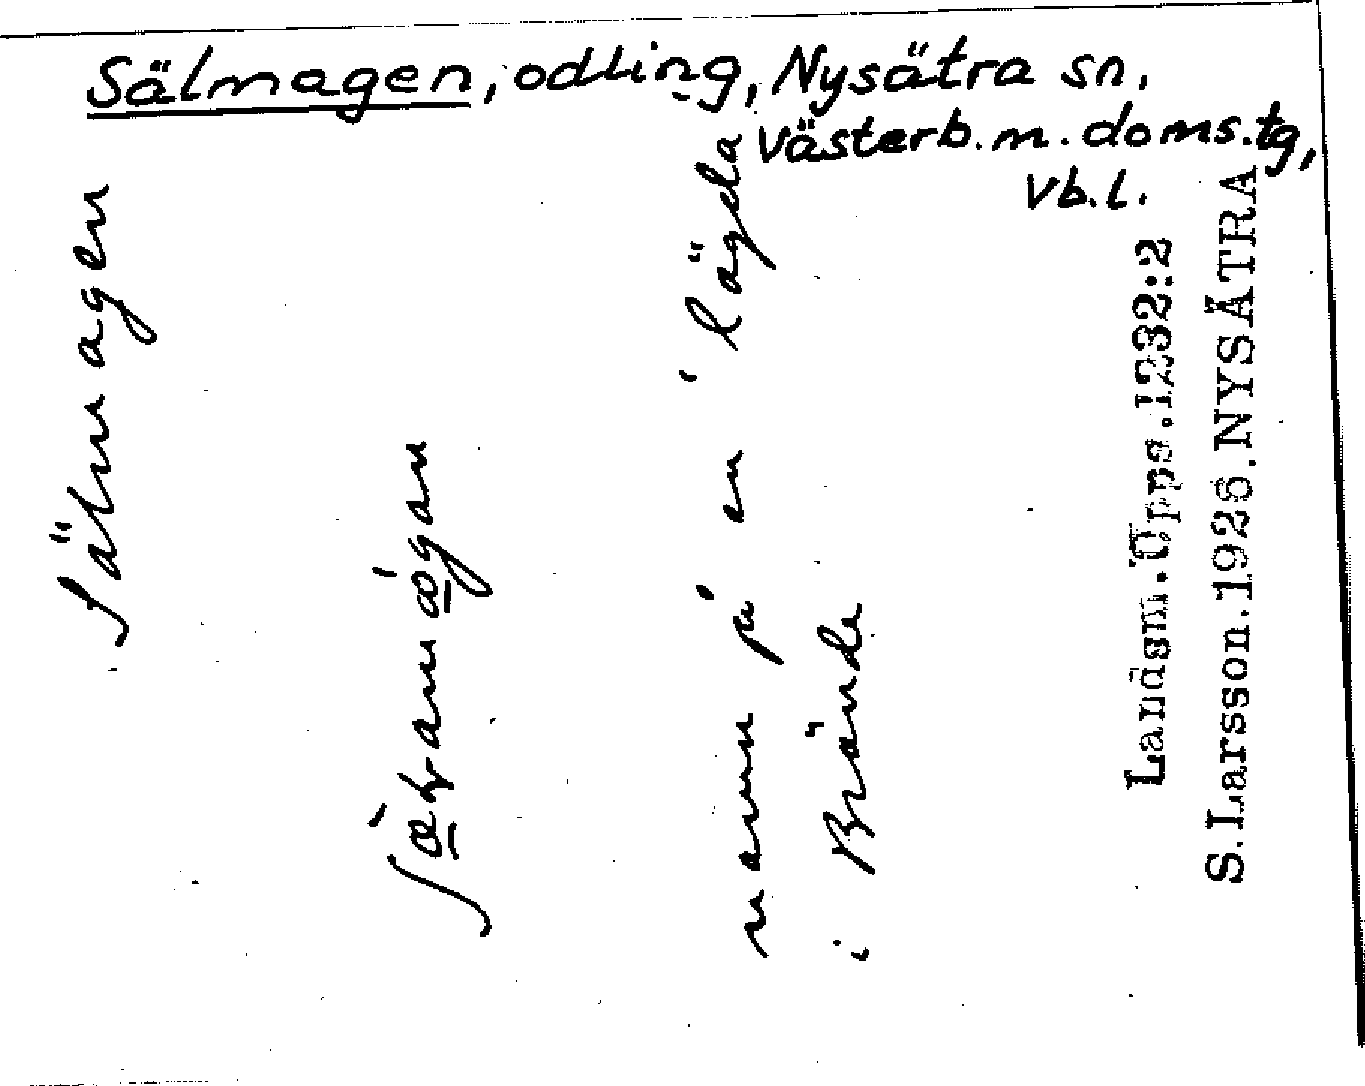 Sälmagen, odling, Nysätra sn,
Västerb. m. doms. tg,
Vb. l.
Sälmagen
namn på en 'lägda
i Brände
Landsm. Upps. 1232:2
S. Larsson. 1926. NYSÄTRA